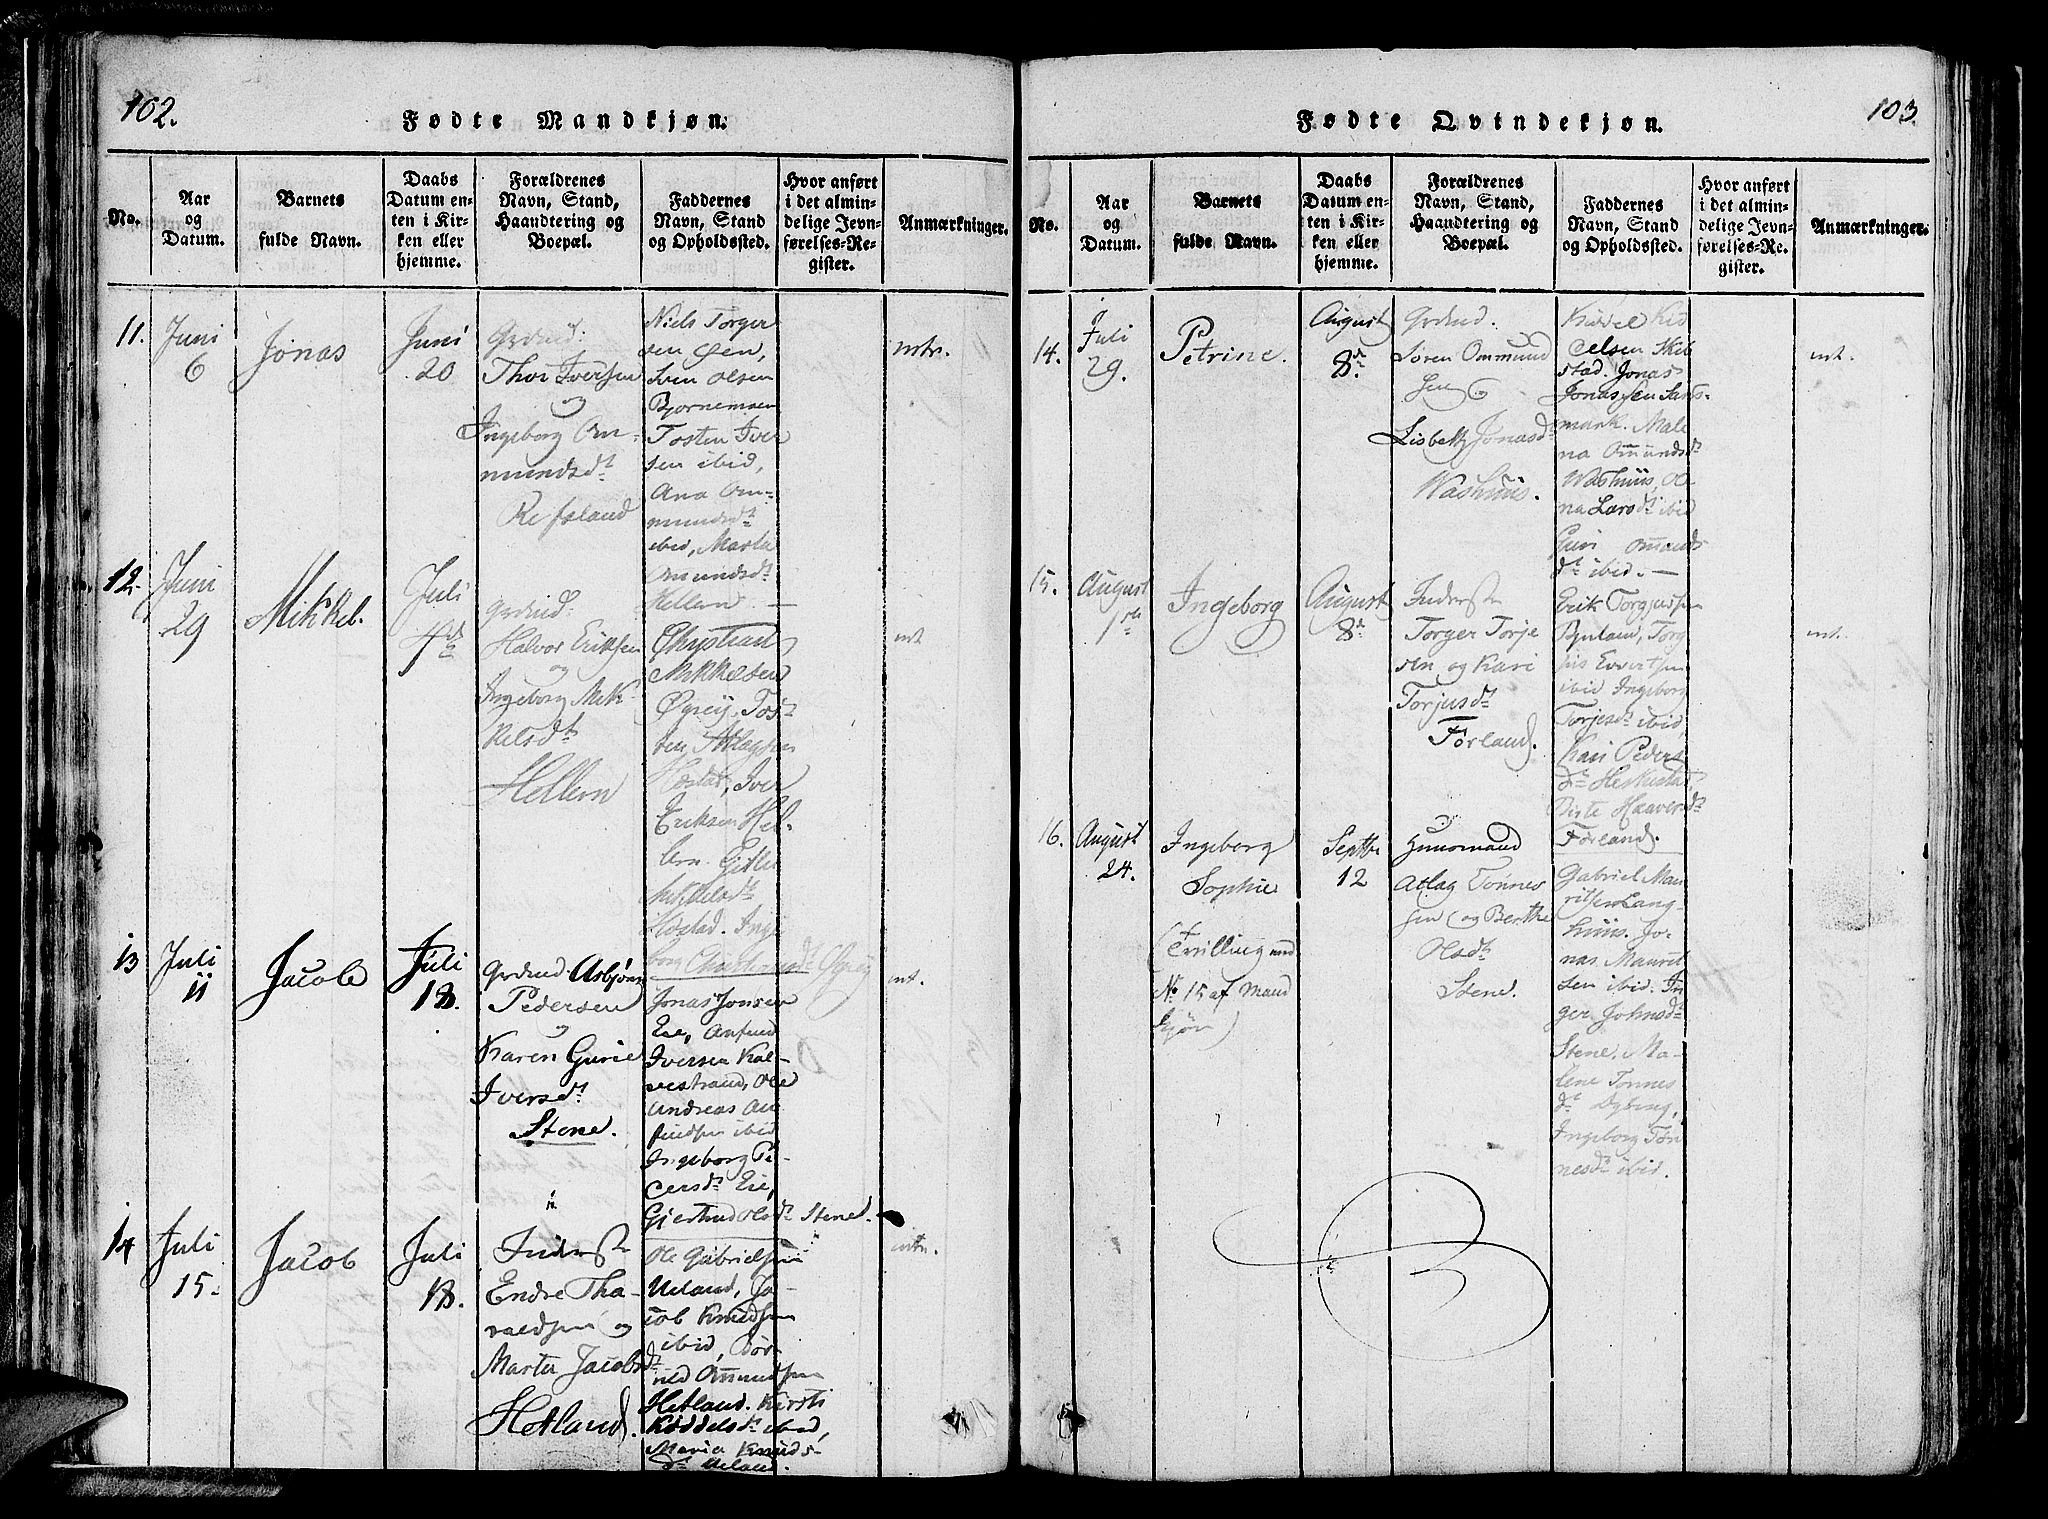 102.
Fødte Mandkjøn.
No.
Aar
og
Datum.
Barnets
fulde Navn.
Daabs
Datum en-
ten i Kir-
ken eller
hjemme.
Forældrenes
Navn, Stand,
Haandtering og
Boepæl.
Faddernes
Navn, Stand
og Opholdssted.
Hvor anført
i det almin-
delige Jevn-
førelses-Re-
gister.
Anmærkninger.
11.
Juni
6
Jonas
Juni
20
Grdmd:
Thor Iversen
og
Ingeborg Om-
mundsdt
Refsland
Niels Torger
sen
Sven Olsen
Bjornemoen
Tosten Iver
sen ibid,
Ana Om-
mundsdt
ibid, Marta
Omundsdt
Hellern. —
12.
Juni
29
Mikkel.
Juli
4de
Grdmd:
Halvor Eriksen
og
Ingeborg Mik-
kelsdt
Hellern
Christian
Mikkelsen
Øgreij, Tos-
ten Atlagsen
Hostad, Iver
Eriksen Hel-
lern.
Mikkelsdt
Hostad. Inge
borg
Øgreij
mt
13
Juli
11
Jacob
Juli
18.
Grdmd. Asbjørn
Pedersen
og
Karen Gurie
Iversdt
Stene.
Jonas Jonsen
Eie, Anfind
Iversen Kal-
vestrand, Ole
Andreas An
findsen ibid
Ingeborg Pe-
dersdt Eie,
Giertrud Olsdt Stene.
mt.
14
Juli
15.
Jacob
Juli
18.
Inderst
Endre Tha-
raldsen og
Marta Jacobsdt
Hetland.
Ole Gabrielsen
Ueland, Ja-
cob Knudsen
ibid,
Ommundsen
Hetland. Kirsti
Kiddelsdt ibid,
Maria Knuds-
dt Ueland.
103.
Fødte Qvindekjøn.
No.
Aar
og
Datum.
Barnets
fulde Navn.
Daabs
Datum en-
ten i Kir-
ken eller
hjemme.
Forældrenes
Navn, Stand,
Haandtering og
Boepæl.
Faddernes
Navn, Stand
og Opholdssted.
Hvor anført
i det almin-
delige Jevn-
førelses-Re-
gister.
Anmærkninger.
14.
Juli
29.
Petrine.
August
8de
Grdmd.
Søren Ommund
sen og
Lisbeth Jonasdt
Washuus.
Kiddel Kid
delsen Skeb
stad. Jonas
Jonassen Sans-
mark. Male
na Omundsdt
Washuus, Ol
na Larsdt ibid
Guri Omunds
dt ibid. —
mt.
15.
August
1ste
Ingeborg
August
8de
Inderst
Torger Torje
sen og Kari
Torjusdt
Førland.
Erik Torgjussen
Torg
jus Evertsen
ibid Ingeborg
Torjesdt ibid,
Kari Peders
dt Heskestad,
Haaversdt
Førland.
mt.
16.
August
24.
Ingeborg
Sophie
(Tvilling med
No 15 af Mand
kjøn)
Septbr
12
Huusmand
Atlag Tønnes
sen og Berthe
Olsdt
Stene.
Gabriel Mau
ritsen Lang-
huus. Jo-
nas Maurit
sen ibid. In
ger Johnsdt
Stene. Ma-
lene Tønnes
dt Dybing,
Ingeborg Tøn
nesdt ibid.